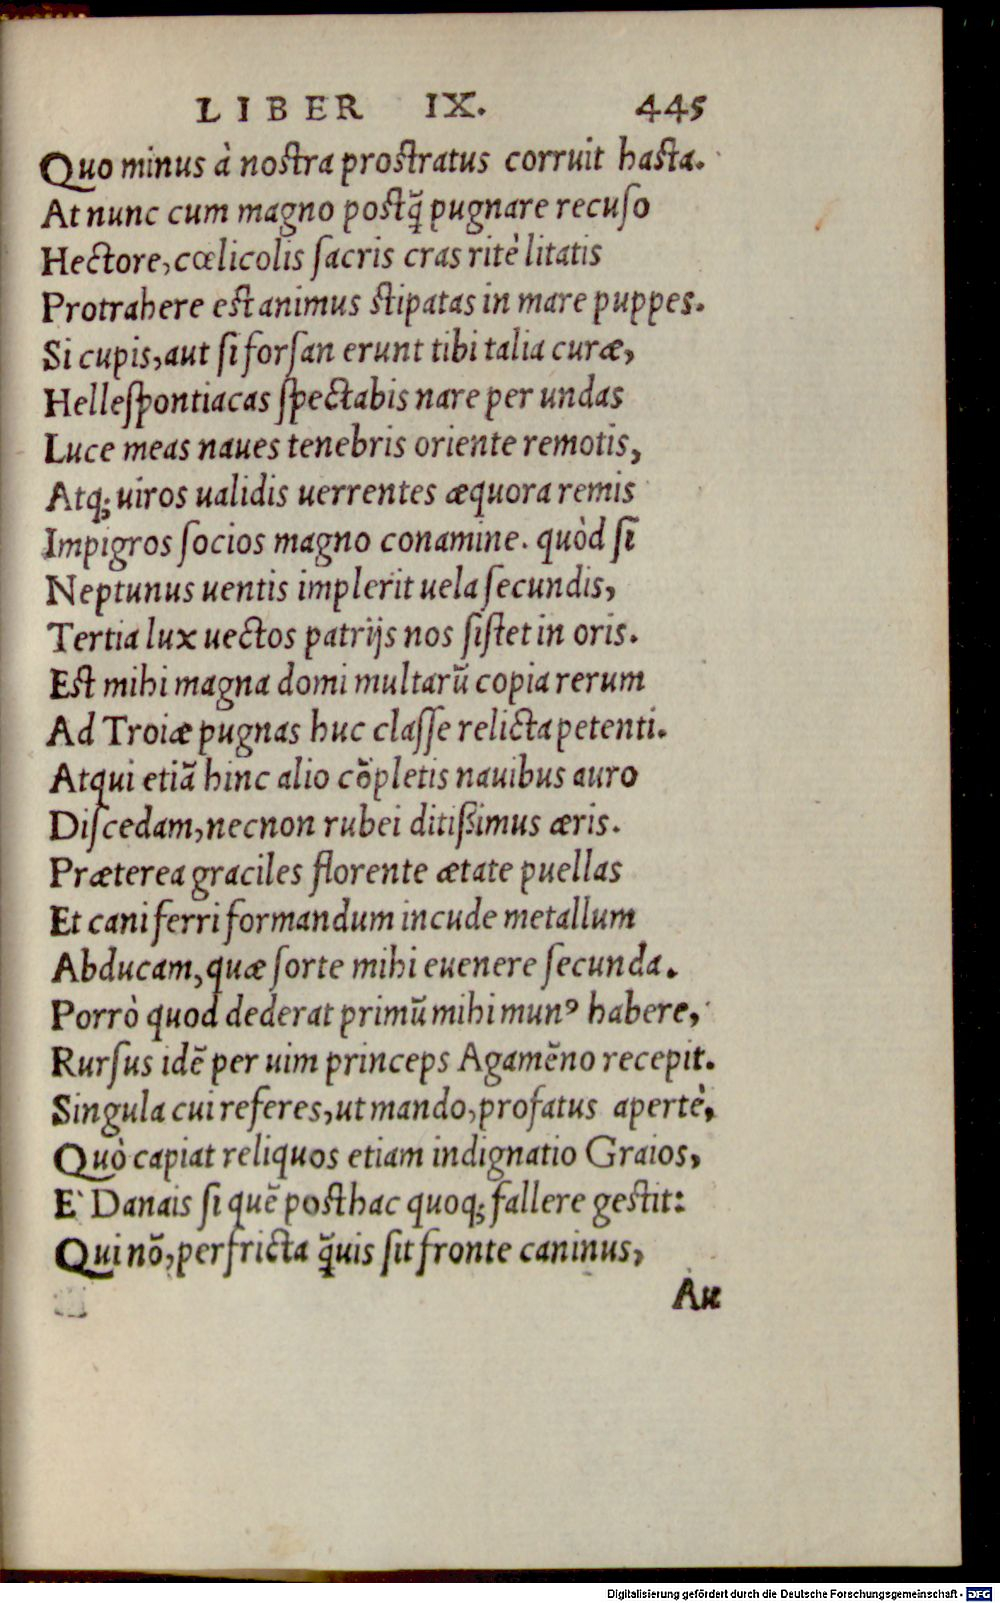 LIBER IX. 445
Quo minus à nostra prostratus corruit hasta.
At nunc cum magno postq̃ pugnare recuso
Hectore, cœlicolis sacris cras ritè litatis
Protrahere est animus stipatas in mare puppes.
Si cupis, aut si forsan erunt tibi talia curæ,
Hellespontiacas spectabis nare per undas
Luce meas naues tenebris oriente remotis,
Atq; uiros ualidis uerrentes æquora remis
Impigros socios magno conamine. quòd si
Neptunus uentis implerit uela secundis,
Tertia lux uectos patrijs nos sistet in oris.
Est mihi magna domi multarũ copia rerum
Ad Troiæ pugnas huc classe relicta petenti.
Atqui etiã hinc alio cõpletis nauibus auro
Discedam, necnon rubei ditißimus æris.
Præterea graciles florente ætate puellas
Et cani ferri formandum incude metallum
Abducam, quæ sorte mihi euenere secunda.
Porrò quod dederat primũ mihi munꝰ habere,
Rursus idẽ per uim princeps Agamẽno recepit.
Singula cui referes, ut mando, profatus apertè,
Quò capiat reliquos etiam indignatio Graios,
E` Danais si quẽ posthac quoq; fallere gestit:
Qui nõ, perfricta q̃uis sit fronte caninus,
Au
Digitalisierung gefördert durch die Deutsche Forschungsgemeinschaft - DFG